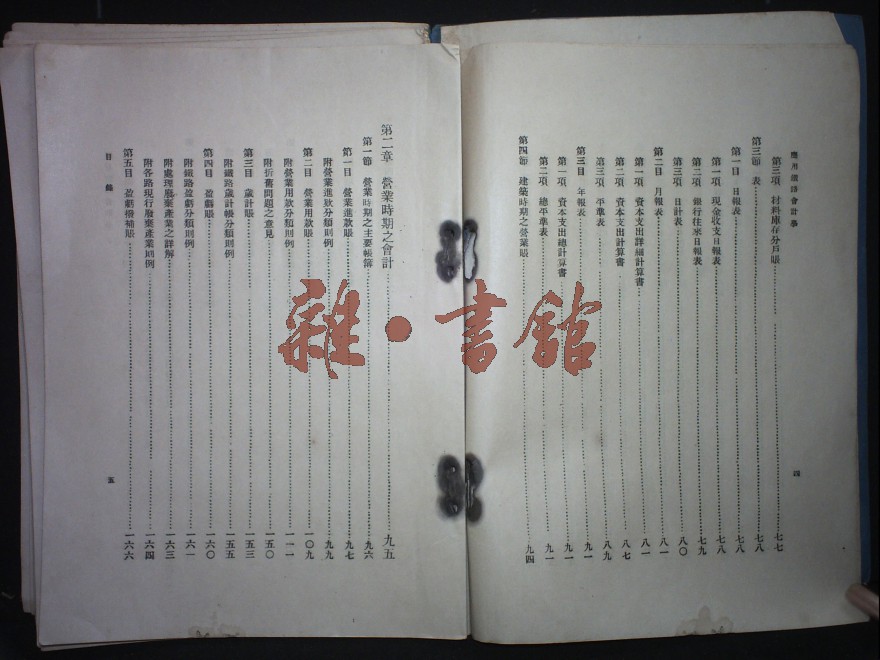 應用鐵路會計學
四
第三項 材料庫存分戶賬 七七
第三節 表 七八
第一目 日報表 七八
第一項 現金收支日報表 七八
第二項 銀行往來日報表 七九
第三項 日計表 八〇
第二目 月報表 八一
第一項 資本支出詳細計算書 八一
第二項 資本支出計算書 八七
第三項 平準表 八九
第三目 年報表 九一
第一項 資本支出總計算書 九一
第二項 總平準表 九一
第四節 建築時期之營業賬 九四
第二章 營業時期之會計 九五
第一節 營業時期之主要帳簿 九六
第一目 營業進款賬 九七
附營業進款分類則例 九九
第二目 營業用款賬 一〇九
附營業用款分類則例 一一一
附折舊問題之意見 一五〇
第三目 歲計賬 一五三
附鐵路歲計帳分類則例 一五五
第四目 盈虧賬 一六〇
附鐵路盈虧分類則例 一六一
附處理廢棄產業之詳解 一六三
附各路現行廢棄產業則例 一六四
第五目 盈虧撥補賬 一六六
目錄
五
雜·書館